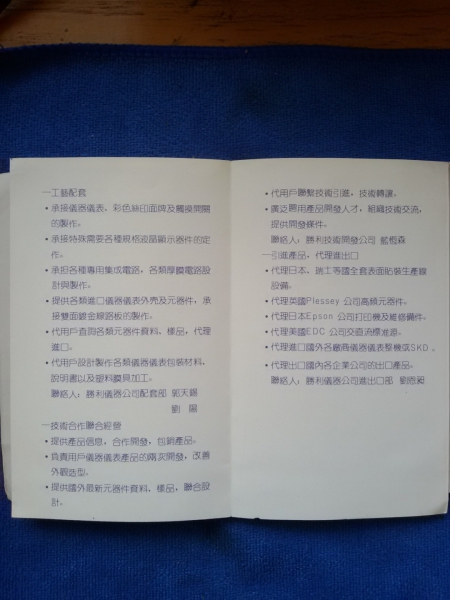 一工藝配套
•承接儀器儀表、彩色絲印面牌及觸摸開關
的製作。
•承接特殊需要各種規格液晶顯示器件的定
作。
•承担各種專用集成電路，各類厚膜電路設
計與製作。
•提供各類進口儀器儀表外壳及元器件，承
接雙面鍍金線路板的製作。
•代用戶查詢各類元器件資料、樣品，代理
進口。
•代用戶設計製作各類儀器儀表包裝材料、
說明書以及塑料模具加工。
聯絡人：勝利儀器公司配套部 郭天錫
劉 陽
一技術合作聯合經營
•提供產品信息，合作開發，包銷產品。
•負責用戶儀器儀表產品的兩次開發，改善
外觀造型。
•提供國外最新元器件資料、樣品，聯合設
計。
•代用戶聯繫技術引進，技術轉讓。
•廣泛聘用產品開發人才，組織技術交流，
提供開發條件。
聯絡人：勝利技術開發公司 藍恆森
一引進產品，代理進出口
•代理日本、瑞士等國全套表面貼裝生產線
設備。
•代理英國Plessey 公司高頻元器件。
•代理日本Epson 公司打印機及維修備件。
•代理美國EDC 公司交直流標准源。
•代理進口國外各廠商儀器儀表整機或SKD。
•代理出口國內各企業公司的出口產品。
聯絡人：勝利儀器公司進出口部 劉